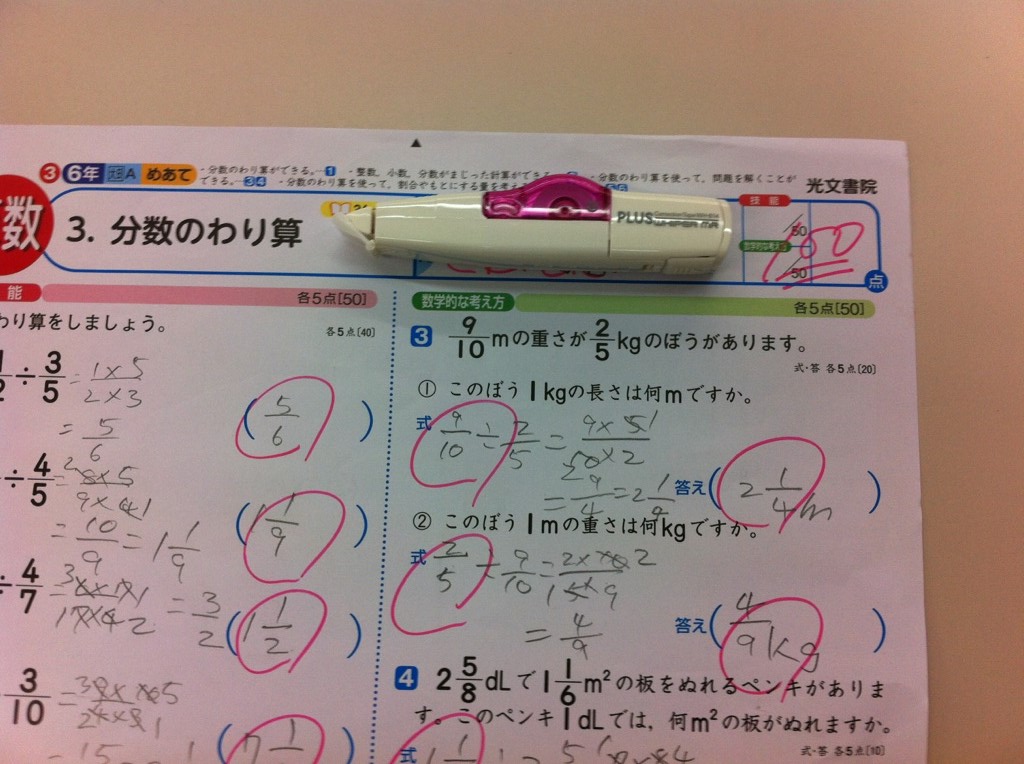 3 6年 A めあて ・分数のわり算ができる。―1 ・整数、小数、分数がまじった計算ができる。 ・分数のわり算を使って、問題を解くことが
できる。―34 ・分数のわり算を使って、割合やもとにする量を考え
光文書院
数 3. 分数のわり算
PLUS
WHIPER MR
技能
50
数学的な考え方
50
100
点
能 各5点[50]
わり算をしましょう。 各5点[40]
1/2÷3/5=1×5/2×3
=5/6
(5/6)
÷4/5=
=10/9=1 1/9
(1 1/9)
÷4/7=
=3/2
(1 1/2)
3/10=
数学的な考え方 各5点[50]
3 9/10mの重さが2/5kgのぼうがあります。
式・答 各5点[20]
① このぼう1kgの長さは何mですか。
式 9/10÷2/5=9×5/10×2
=9/4=2 1/4
答え(2 1/4m)
② このぼう1mの重さは何kgですか。
式 2/5÷9/10=2×10/5×9
=4/9
答え(4/9kg)
4 2 5/8dLで1 1/6m²の板をぬれるペンキがありま
す。このペンキ1dLでは、何m²の板がぬれますか。
式・答 各5点[10]
式